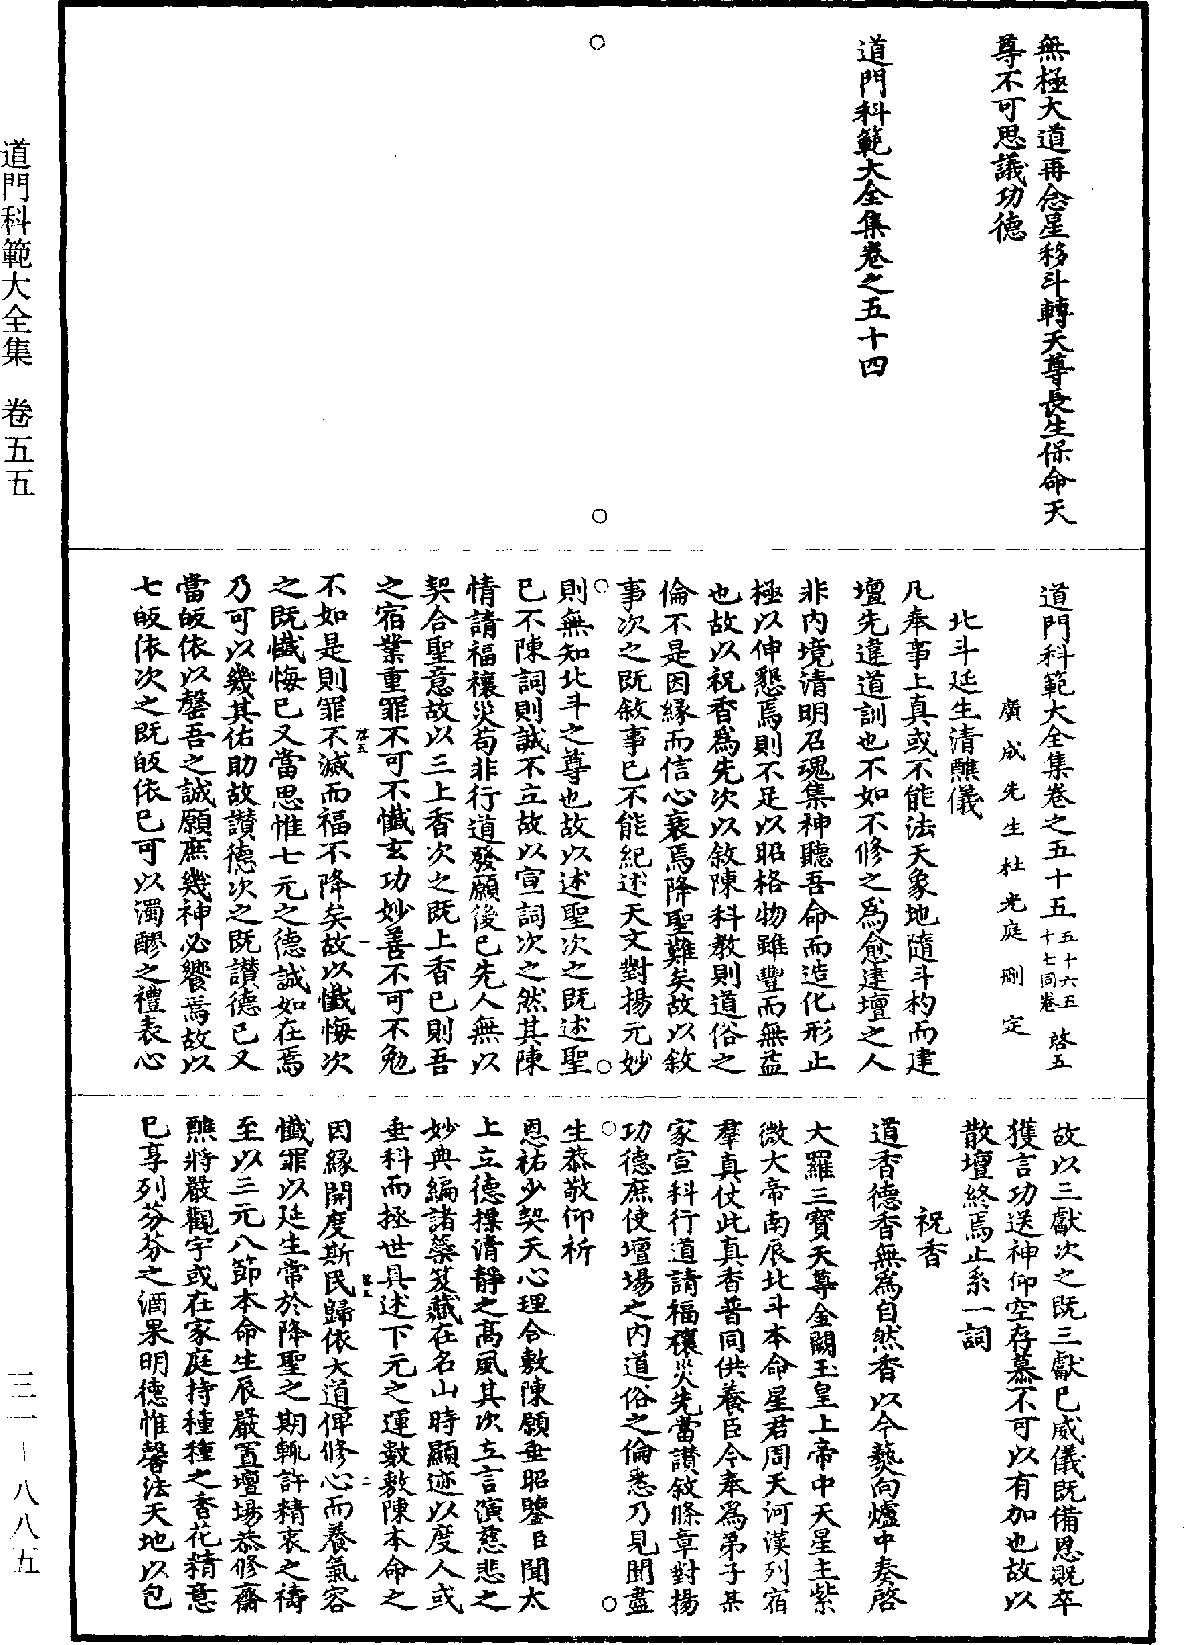 無極大道再念星移斗轉天尊長生保命天
尊不可思議功德
道門科範大全集卷之五十四
道門科範大全集卷之五十五 五十六五十七同卷 啓五
廣成先生杜光庭刪定
北斗延生清醮儀
凡奉事上真或不能法天象地隨斗杓而建
壇先違道訓也不如不修之為愈建壇之人
非內境清明召魂集神聽吾命而造化形止
極以伸懇焉則不足以昭格物雖豐而無益
也故以祝香為先次以敘陳科教則道俗之
倫不是因緣而信心衰焉降聖難矣故以敘
事次之既敘事已不能紀述天文對揚元妙
則無知北斗之尊也故以述聖次之既述聖
已不陳詞則誠不立故以宣詞次之然其陳
情請福禳災苟非行道發願後已先人無以
契合聖意故以三上香次之既上香已則吾
之宿業重罪不可不懺玄功妙善不可不勉
啓五 一
不如是則罪不滅而福不降矣故以懺悔次
之既懺悔已又當思惟七元之德誠如在焉
乃可以幾其佑助故讃德次之既讃德已又
當皈依以罄吾之誠願庶幾神必饗焉故以
七皈依次之既皈依已可以濁醪之禮表心
故以三獻次之既三獻已威儀既備恩貺卒
獲言功送神仰空存慕不可以有加也故以
散壇終焉止系一詞
祝香
道香德香無為自然香以今爇向爐中奏啓
大羅三寳天尊金闕玉皇上帝中天星主紫
微大帝南辰北斗本命星君周天河漢列宿
羣真仗此真香普同供養臣今奉為弟子某
家宣科行道請福禳災先當讃敘條章對揚
功德庶使壇場之內道俗之倫悉乃見聞盡
生恭敬仰祈
恩祐少契天心理合敷陳願垂昭鑒臣聞太
上立德揲清靜之高風其次立言演慈悲之
妙典編諸蘂笈藏在名山時顯迹以度人或
垂科而拯世具述下元之運數敷陳本命之
啓五 二
因緣開度斯民歸依大道俾修心而養氣容
懺罪以延生常於降聖之期輒許精衷之禱
至以三元八節本命生辰嚴置壇場恭修齋
醮將嚴觀宇或在家庭持種種之香花精意
已享列芬芬之酒果明德惟馨法天地以包
道門科範大全集 卷五五
三一-八八五